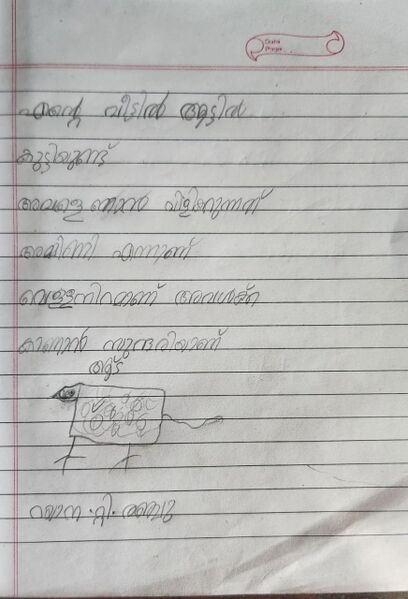 Date
Page
എന്റെ വീട്ടിൽ ആട്ടിൻ
കുട്ടിയുണ്ട്
അവളെ ഞാൻ വിളിക്കുന്നത്
അമ്മിണി എന്നാണ്
വെള്ളനിറമാണ് അവൾക്ക്
കാണാൻ സുന്ദരിയാണ്
ആട്